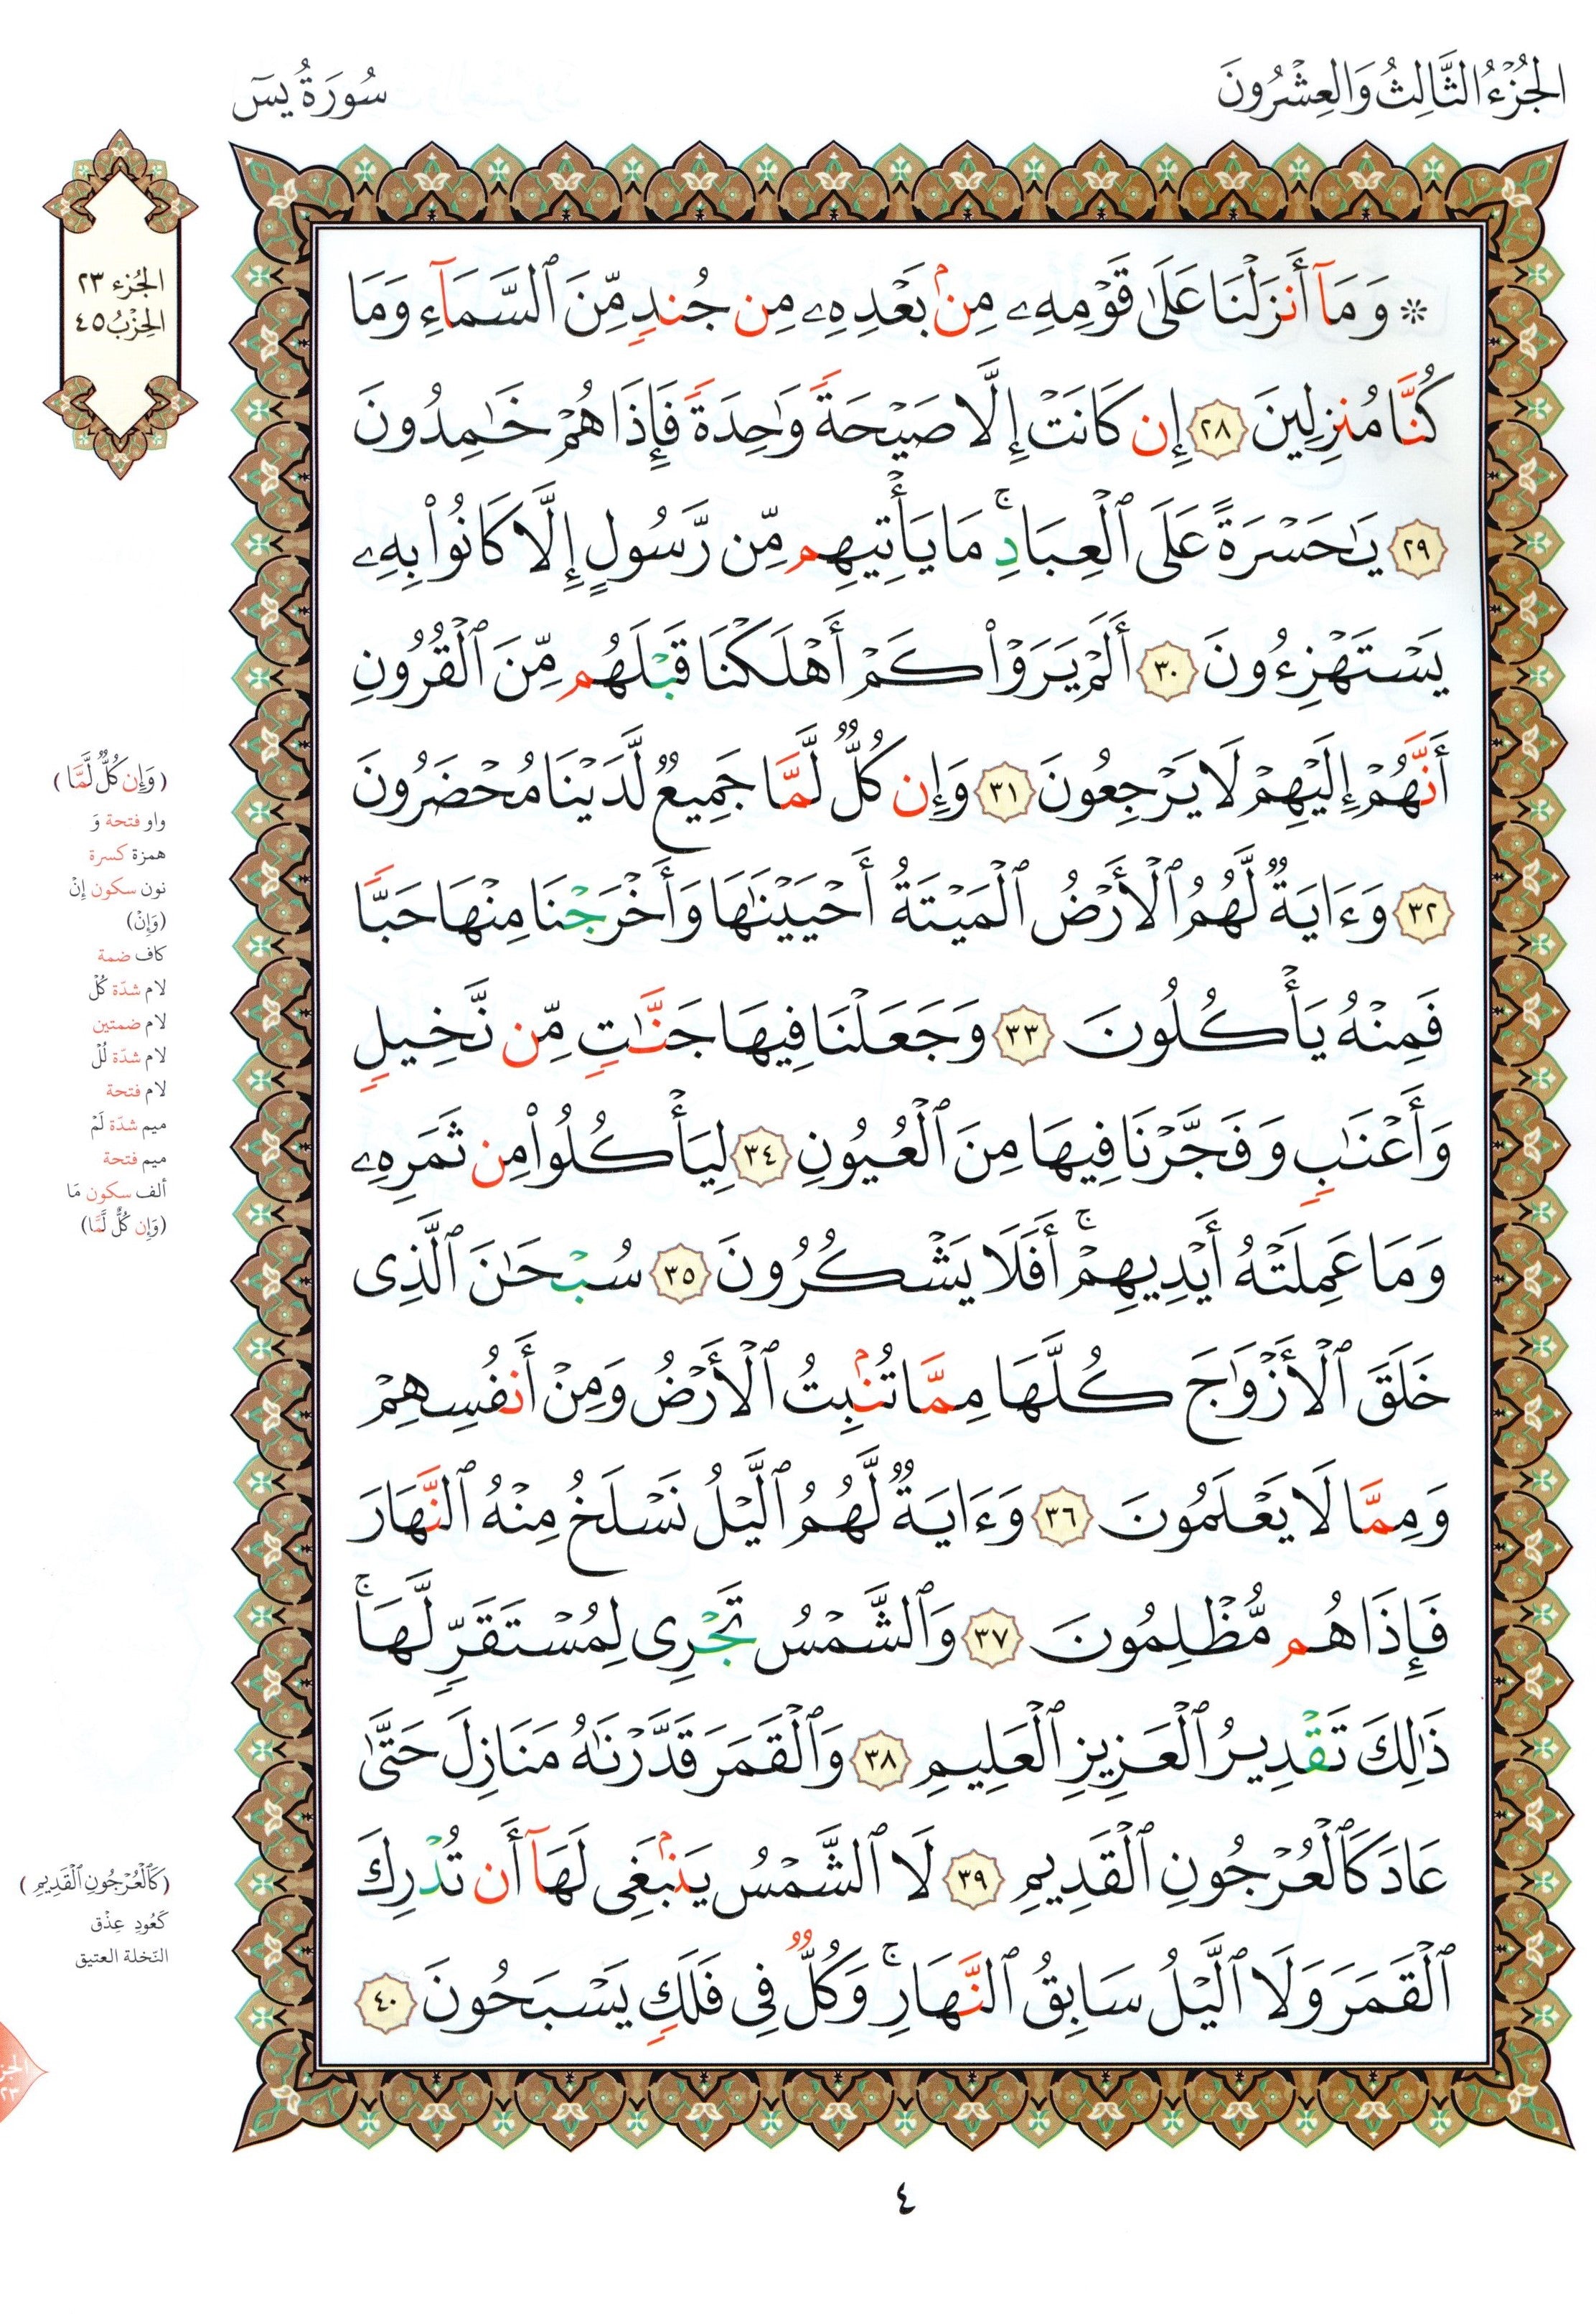 الجُزْءُ الثَّالِثُ وَالعِشْرُونَ
سُورَةُ يسٓ
الجُزء ٢٣
الحِزْبُ ٤٥
۞ وَمَآ أَنزَلْنَا عَلَىٰ قَوْمِهِۦ مِنۢ بَعْدِهِۦ مِن جُندٍ مِّنَ ٱلسَّمَآءِ وَمَا
كُنَّا مُنزِلِينَ ٢٨ إِن كَانَتْ إِلَّا صَيْحَةً وَٰحِدَةً فَإِذَا هُمْ خَـٰمِدُونَ
٢٩ يَـٰحَسْرَةً عَلَى ٱلْعِبَادِ ۚ مَا يَأْتِيهِم مِّن رَّسُولٍ إِلَّا كَانُوا۟ بِهِۦ
يَسْتَهْزِءُونَ ٣٠ أَلَمْ يَرَوْا۟ كَمْ أَهْلَكْنَا قَبْلَهُم مِّنَ ٱلْقُرُونِ
أَنَّهُمْ إِلَيْهِمْ لَا يَرْجِعُونَ ٣١ وَإِن كُلٌّ لَّمَّا جَمِيعٌ لَّدَيْنَا مُحْضَرُونَ
٣٢ وَءَايَةٌ لَّهُمُ ٱلْأَرْضُ ٱلْمَيْتَةُ أَحْيَيْنَـٰهَا وَأَخْرَجْنَا مِنْهَا حَبًّا
فَمِنْهُ يَأْكُلُونَ ٣٣ وَجَعَلْنَا فِيهَا جَنَّـٰتٍ مِّن نَّخِيلٍ
وَأَعْنَـٰبٍ وَفَجَّرْنَا فِيهَا مِنَ ٱلْعُيُونِ ٣٤ لِيَأْكُلُوا۟ مِن ثَمَرِهِۦ
وَمَا عَمِلَتْهُ أَيْدِيهِمْ ۚ أَفَلَا يَشْكُرُونَ ٣٥ سُبْحَـٰنَ ٱلَّذِى
خَلَقَ ٱلْأَزْوَٰجَ كُلَّهَا مِمَّا تُنۢبِتُ ٱلْأَرْضُ وَمِنْ أَنفُسِهِمْ
وَمِمَّا لَا يَعْلَمُونَ ٣٦ وَءَايَةٌ لَّهُمُ ٱلَّيْلُ نَسْلَخُ مِنْهُ ٱلنَّهَارَ
فَإِذَا هُم مُّظْلِمُونَ ٣٧ وَٱلشَّمْسُ تَجْرِى لِمُسْتَقَرٍّ لَّهَا ۚ
ذَٰلِكَ تَقْدِيرُ ٱلْعَزِيزِ ٱلْعَلِيمِ ٣٨ وَٱلْقَمَرَ قَدَّرْنَـٰهُ مَنَازِلَ حَتَّىٰ
عَادَ كَٱلْعُرْجُونِ ٱلْقَدِيمِ ٣٩ لَا ٱلشَّمْسُ يَنۢبَغِى لَهَآ أَن تُدْرِكَ
ٱلْقَمَرَ وَلَا ٱلَّيْلُ سَابِقُ ٱلنَّهَارِ ۚ وَكُلٌّ فِى فَلَكٍ يَسْبَحُونَ ٤٠
(وَإِن كُلٌّ لَّمَّا)
واو فتحة وَ
همزة كسرة
نون سكون إِنْ
(وَإِنْ)
كاف ضمة
لام شدّة كُلْ
لام ضمتين
لام شدّة لُلْ
لام فتحة
ميم شدّة لَمْ
ميم فتحة
ألف سكون مَا
(وَإِن كُلٌّ لَّمَّا)
(كَٱلْعُرْجُونِ ٱلْقَدِيمِ)
كَعُودِ عِذْق
النّخلة العتيق
٤